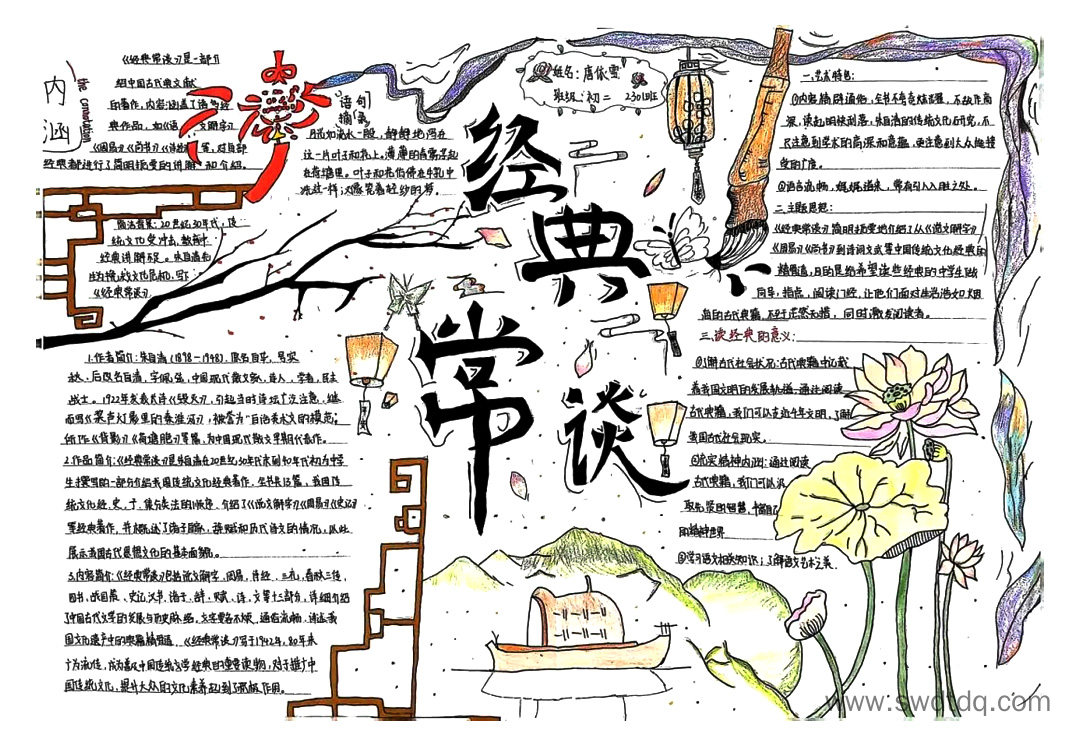 内涵
the connotation
《经典常谈》是一部介
绍中国古代散文献
的著作,内容涵盖了诸多经
典作品,如《说文解字》
《周易》《尚书》《诗经》等,对每部
经典都进行了简明扼要的讲解和介绍。
简洁背景:20世纪30年代,传
统文化受冲击,教育中
经典讲解不足。朱自清先
为接
文化危机,写下
《经典常谈》
语句摘录
月光如流水一般,静静地泻在
这一片叶子和花上。薄薄的青雾浮起
在荷塘里。叶子和花仿佛在牛乳中
洗过一样;又像笼着轻纱的梦。
姓名:唐依雪
班级:初二 2301班
经典常谈
1.作者简介:朱自清(1898-1948),原名自华,号实
秋,后改名自清,字佩弦,中国现代散文家,诗人,学者,民主
战士。1922年发表长诗《毁灭》,引起当时诗坛广泛注意,继
而写《桨声灯影里的秦淮河》,被誉为"白话美术文的模范",
《背影》《荷塘月色》等篇,为中国现代散文早期代表作。
2.作品简介:《经典常谈》是朱自清在20世纪30年代末到40年代初为中学
生撰写的一部介绍我国传统文化经典著作,全书共13篇,我国传
统文化经、史、子、集分类法的顺序,介绍了《说文解字》《周易》《史记》
等经典著作,并概述了诸子百家,辞赋和历代诗文的情况,以此
展示我国古代思想文化的基本面貌。
3.内容简介:《经典常谈》包括说文解字,周易,诗经,三礼,春秋三传,
四书,战国策,史记汉书,诸子,辞,赋,诗,文等十三部分,详细介绍
了中国古代文学的发展与历史脉络,文字要言不烦,通俗流畅,讲述我
国文化遗产中的典籍精华篇,《经典常谈》写于1942年,80年来
广为流传,成为普及中国传统文学经典的重要读物,对于推广中
国传统文化,提升大众的文化素养起到了积极作用。
一.艺术特色:
①内容精辟通俗,全书不夸奇炫古涩,不故作高
深,读起来明快利落,朱自清的传统文化研究,不
只注意到学术的高深和意蕴,更注意到大众能接
受的广度。
②语言流畅,娓娓道来,带有引人入胜之处。
二.主题思想:
《经典常谈》简明扼要地介绍了从《说文解字》
《周易》《尚书》到诗词文或等中国传统文化经典的
精髓,目的是给希望读些经典的中学生做
向导,指点,阅读门径,让他们面对先浩浩如烟
海的古代典籍,不至于茫然无措,同时激发阅读者。
三.读经典的意义:
①了解古代社会状况:古代典籍中记载
着我国文明的发展轨迹,通过阅读
古代典籍,我们可以走近千年文明,了解
我国古代社会现实。
②充实精神内涵:通过阅读
古代典籍,我们可以汲
取先贤的智慧,丰富自己
的精神世界
③学习语文相关知识:了解语文艺术之美。
www.swdtdq.com